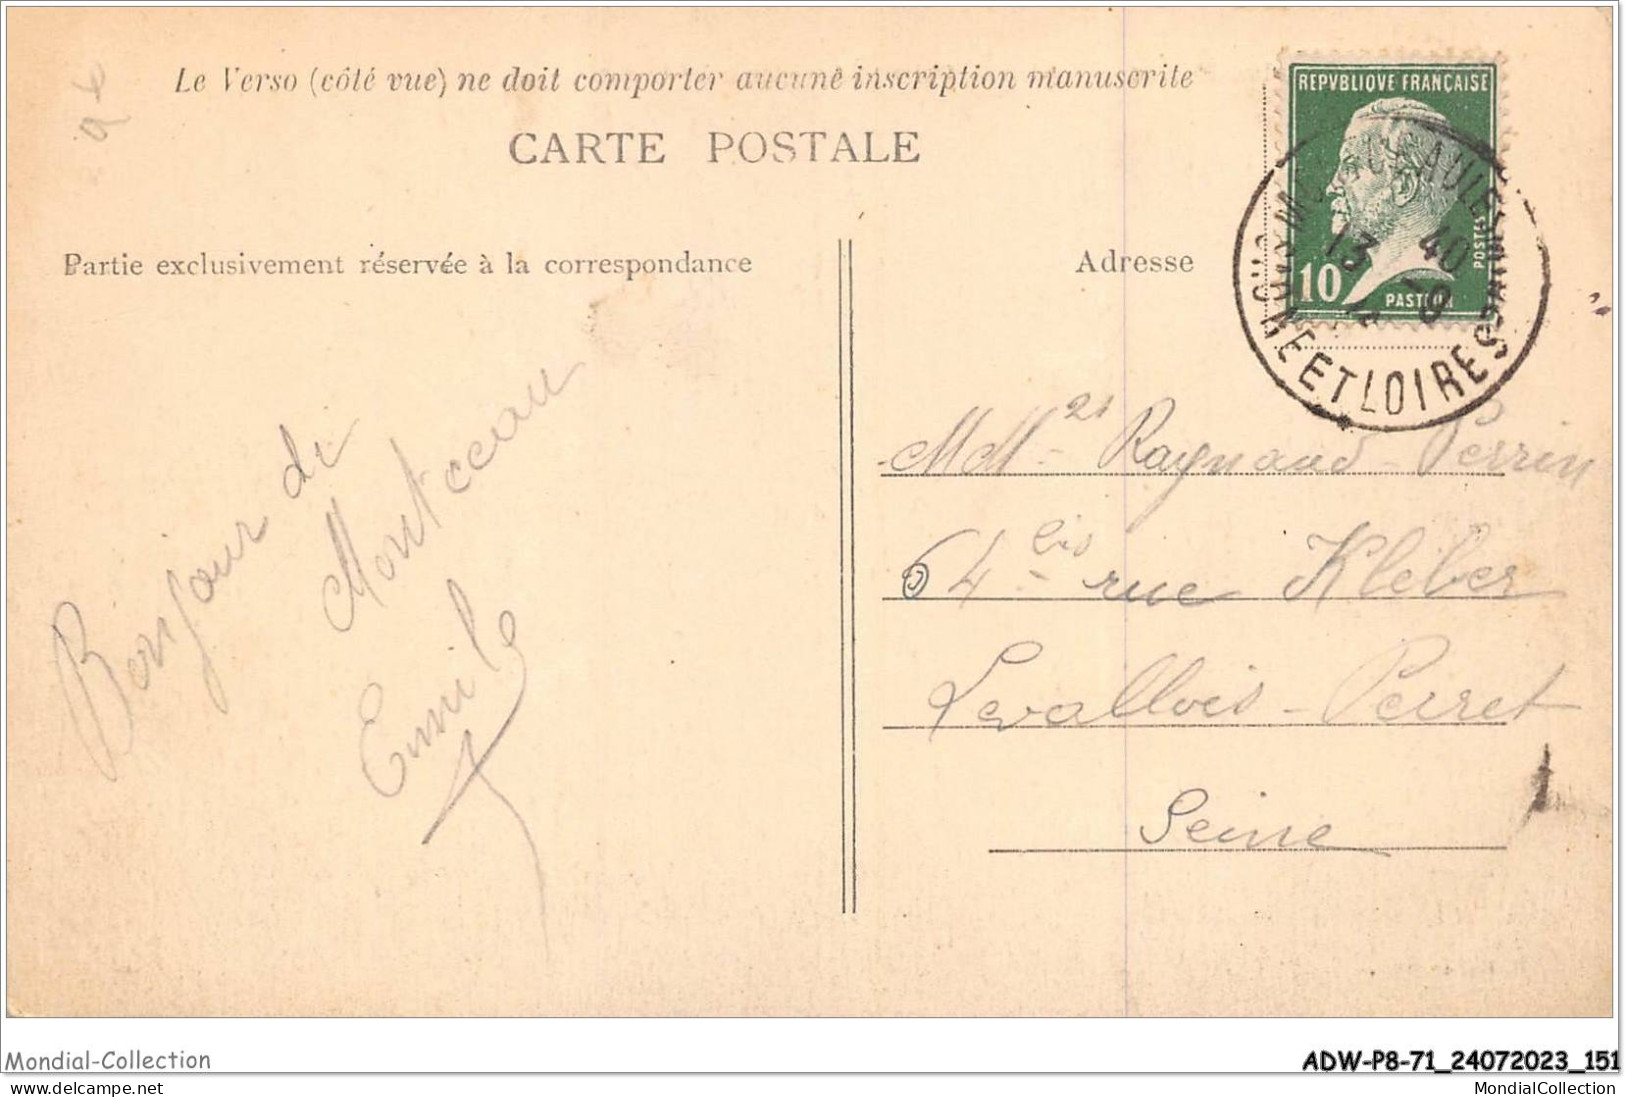 Le Verso (côté vue) ne doit comporter aucune inscription manuscrite
CARTE POSTALE
Partie exclusivement réservée à la correspondance
Adresse
REPVBLIQVE FRANÇAISE
POSTES
10
PASTEUR
13 40
9
SAONE ET LOIRE
Bonjour de
Montceau
Emile
MM Raynaud-Perrin
64 bis rue Kleber
Levallois-Perret
Seine
Mondial-Collection
ADW-P8-71_24072023_151
MondialCollection